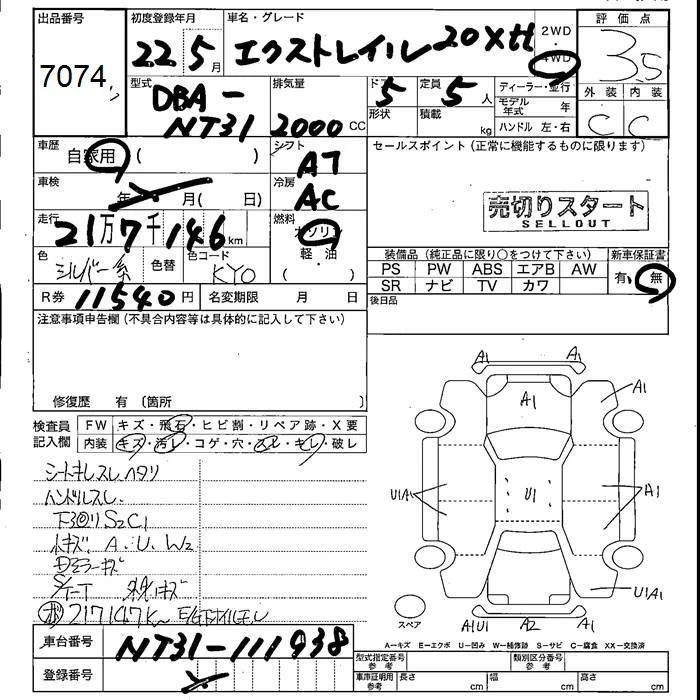 出品番号 初度登録年月 車名・グレード 評価点
7074 22 5月 エクストレイル 20Xtt 2WD 4WD 3.5
型式 排気量 ドア 定員 ディーラー・並行 外装 内装
DBA-NT31 2000CC 5 5人 モデル年式 年 C C
形状 積載 kg ハンドル 左・右
車歴 自家用 ( ) シフト AT セールスポイント (正常に機能するものに限ります)
車検 年 月( 日) 冷房 AC
売切りスタート
SELLOUT
走行 21万7千146km 燃料 ガソリン
軽・油
( )
色 シルバー系 色替 色コード KYO
装備品 (純正品に限り○をつけて下さい) 新車保証書
PS PW ABS エアB AW 有・無
SR ナビ TV カワ
R券 11540円 名変期限 月 日 後日品
注意事項申告欄 (不具合内容等は具体的に記入して下さい)
修復歴 有 〔箇所 〕
検査員記入欄 FW キズ・飛石・ヒビ割・リペア跡・X要
内装 キズ・汚レ・コゲ・穴・スレ・キレ・破レ
シートキレスレ ヘタリ
ハンドルスレ
下廻りS2C1
小キズ. A.U.W2
Dミラーキズ
217147K~
A1 A1
A1 A1
U1A1 U1 A1
U1A1
スペア A1U1 A2 A1
A=キズ E=エクボ U=凹み W=補修跡 S=サビ C=腐食 XX=交換済
車台番号 NT31-111938
登録番号
型式指定番号 参考 類別区分番号 参考
車庫証明寸 参考 長さ cm 幅 cm 高さ cm